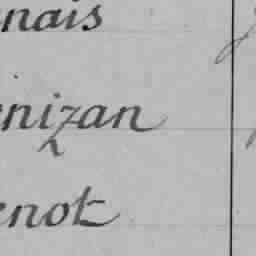 nais
nizan
enot